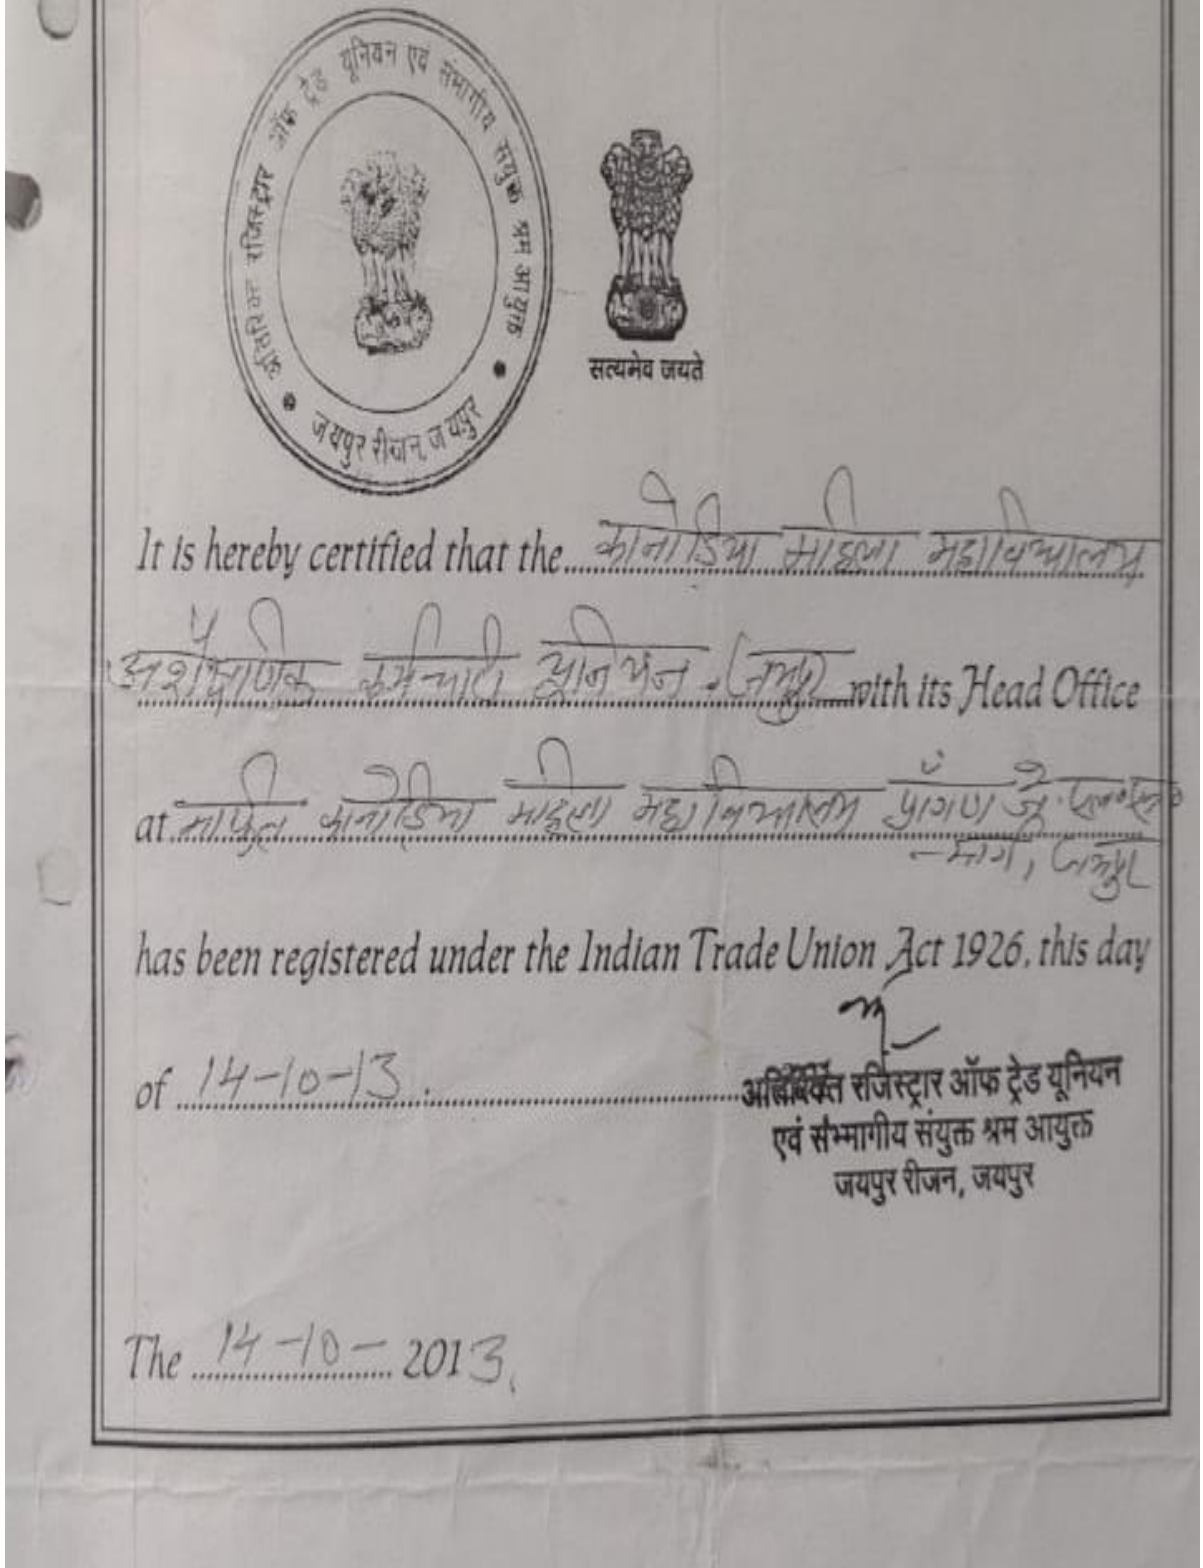 अतिरिक्त रजिस्ट्रार ऑफ ट्रेड यूनियन एवं संभागीय संयुक्त श्रम आयुक्त
जयपुर रीजन, जयपुर
सत्यमेव जयते
It is hereby certified that the कानोडिया महिला महाविद्यालय
अशैक्षणिक कर्मचारी यूनियन (जयपुर) with its Head Office
at मार्फत कानोडिया महिला महाविद्यालय प्रांगण जे. एल. एन.
मार्ग, जयपुर
has been registered under the Indian Trade Union Act 1926, this day
of 14-10-13.
अतिरिक्त रजिस्ट्रार ऑफ ट्रेड यूनियन
एवं संम्भागीय संयुक्त श्रम आयुक्त
जयपुर रीजन, जयपुर
The 14-10-2013.